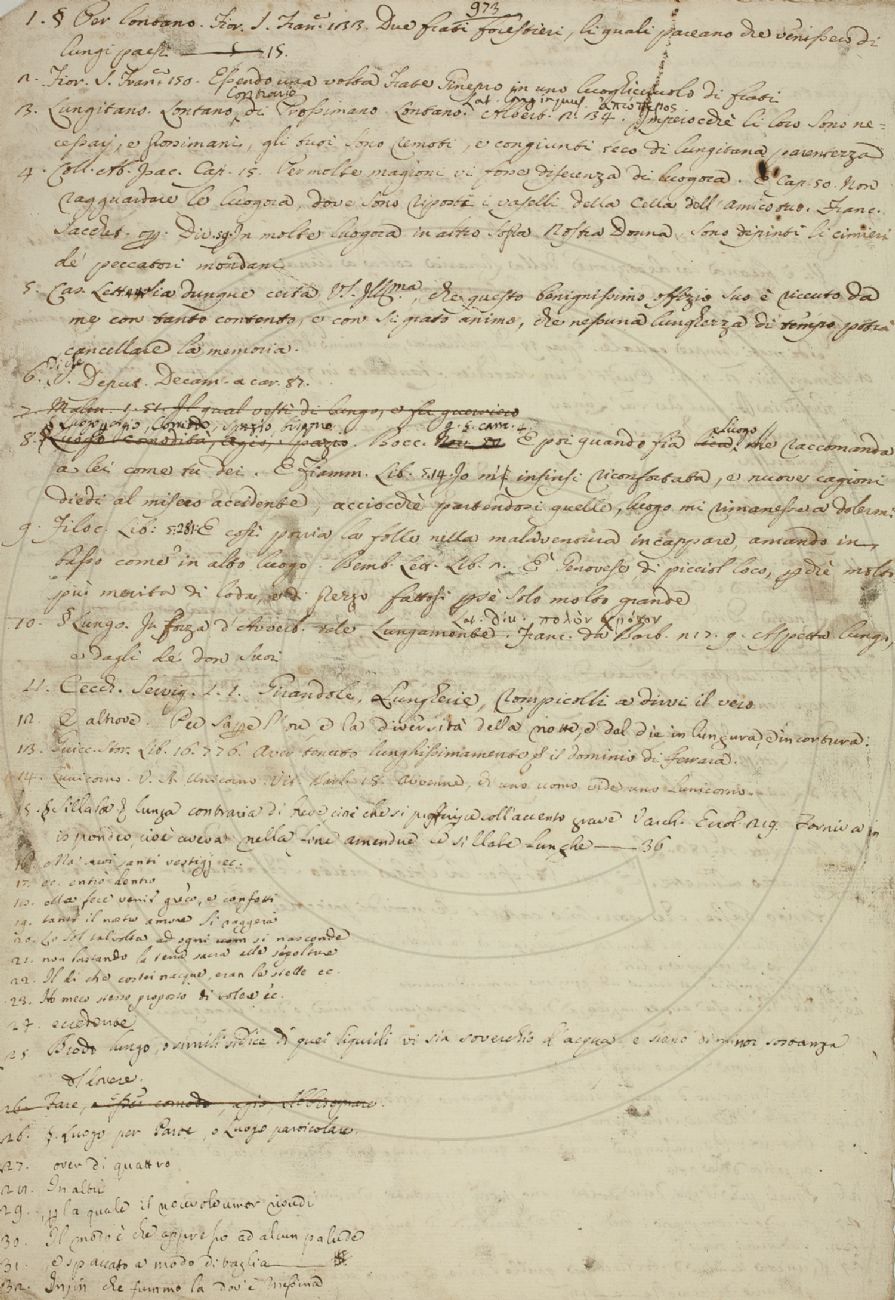 973
1. § Per lontano. Fior. S. Franc. 133. Due frati forestieri, li quali pareano che venissero di
lungi paesi. 15.
2. Fior. S. Franc. 150. Essendo una volta frate Ginepro in uno luoghicciuolo di frati
Contrario Lat. longinquus.
3. Lungitano. Lontano, di Prossimano. Lontano. Albert. 2. 34. Imperocchè li loro sono ne-
cessarj, e prossimani, gli tuoi sono remoti, e congiunti teco di lungitana parentezza
4. Coll. Ab. Isac. Cap. 15. Per molte magioni vi pone diferenza di luogora. E Cap. 50. Non
ragguardare le luogora, dove sono riposti i vaselli della cella dell'amico tuo. Franc.
Sacchet. Op. Div. 59. In molte luogora in altro sopra Nostra Donna sono dipinti li cimieri
de' peccatori mondani
5. Cas. Lett. Sia dunque certa V. S. Illma, che questo benignissimo offizio suo è ricevuto da
me con tanto contento, e con sì grato animo, che nessuna lunghezza di tempo potrà
cancellare la memoria.
6. V. Deput. Decam. a car. 87.
7. Malm. 1. 51. Il qual vestì di lungo, e fu guerriero
8. Luogo comodità, agio, spazio. Bocc. E poi quando fia luogo me raccomanda
a lei come tu dei. E Fiamm. Lib. 5. 14. Io m'infinsi riconfortata, e nuove cagioni
diedi al misero accidente, acciocchè partendosi quelle, luogo mi rimanesse a dolermi
9. Filoc. Lib. 5. 281. E così porria la folle nella malaventura incappare, amando in
basso come in alto luogo. Bemb. Lett. Lib. 2. È Genovese di picciol loco, perchè molto
più merita di loda, e di prezzo fattosi per se solo molto grande
Lat. diu. πολὺν χρόνον
10. § Lungo. In forza d'Avverb. vale Lungamente. Franc. da Barb. 217. 9. Aspetta lungo,
e dagli de' don suoi
11. Cecch. Servig. 1. 1. Girandole, Lungherie, rompicolli a dirvi il vero
12. E altrove. Per sapere l'ore e la diversità della notte, e dal die in lungura, e in cortura.
13. Guicc. Stor. Lib. 16. 776. Aver tenuto lunghissimamente il dominio di Ferrara.
14. Lunicorno. V. A. Unicorno. Vit. Barl. 18. Avvenne, di uno uomo vide uno lunicorno.
15. § Sillaba § lunga contraria di breve cioè che si profferisce coll'accento grave Varch. Ercol. 219. Forniva in
ispondeo, cioè aveva nella fine amendue le sillabe lunghe 36
16. Mai avvi santi vestigj ec.
17. ec. entro dentro
18. Ma fece venir greco, e confetti
19. tanto il nostro amore si reggerà
20. Lo Sol talvolta ad ogni uom si nasconde
21. non bastando la terra sacra alle sepolture
22. Il dì che costei nacque, eran le stelle ec.
23. Ho meco stesso proposto di volere ec.
24. eccedente
25. Brodo lungo, o simili si dice di quei liquidi vi sia soverchio d'acqua e sieno di minor sostanza
del dovere.
26. Fare, comodo, agio,
26. §. Luogo per Parte, o Luogo particolare.
27. over di quattro
28. In altri
29. per la quale il nocevole umor riprendi
30. Il modo è che appresso ad alcun palude
31. e spaccato a modo di vaglia
32. Insin che fummo la dov'è Messina